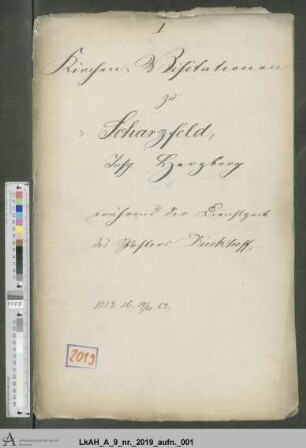 1
Kirchen-Visitationen
zu
Scharzfeld,
Insp. Herzberg
während der Dienstzeit
des Pastors
1853.
2019
LkAH_A_9_nr._2019_aufn._001